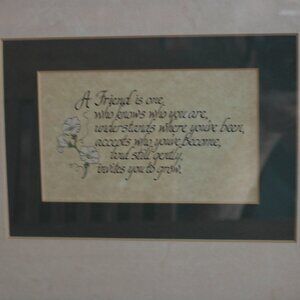 A Friend is one,
who knows who you are,
understands where you've been,
accepts who you've become,
and still gently,
invites you to grow.